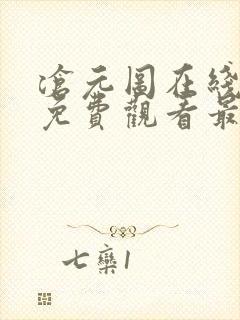 滄元圖在綫
免費觀看最
七欒1